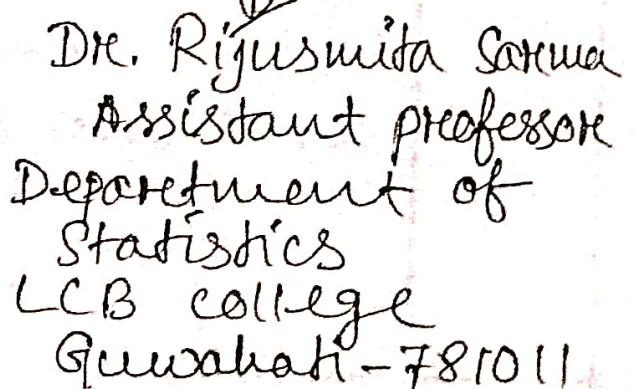 Dr. Rijusmita Sarma
Assistant professor
Department of
Statistics
LCB college
Guwahati - 781011